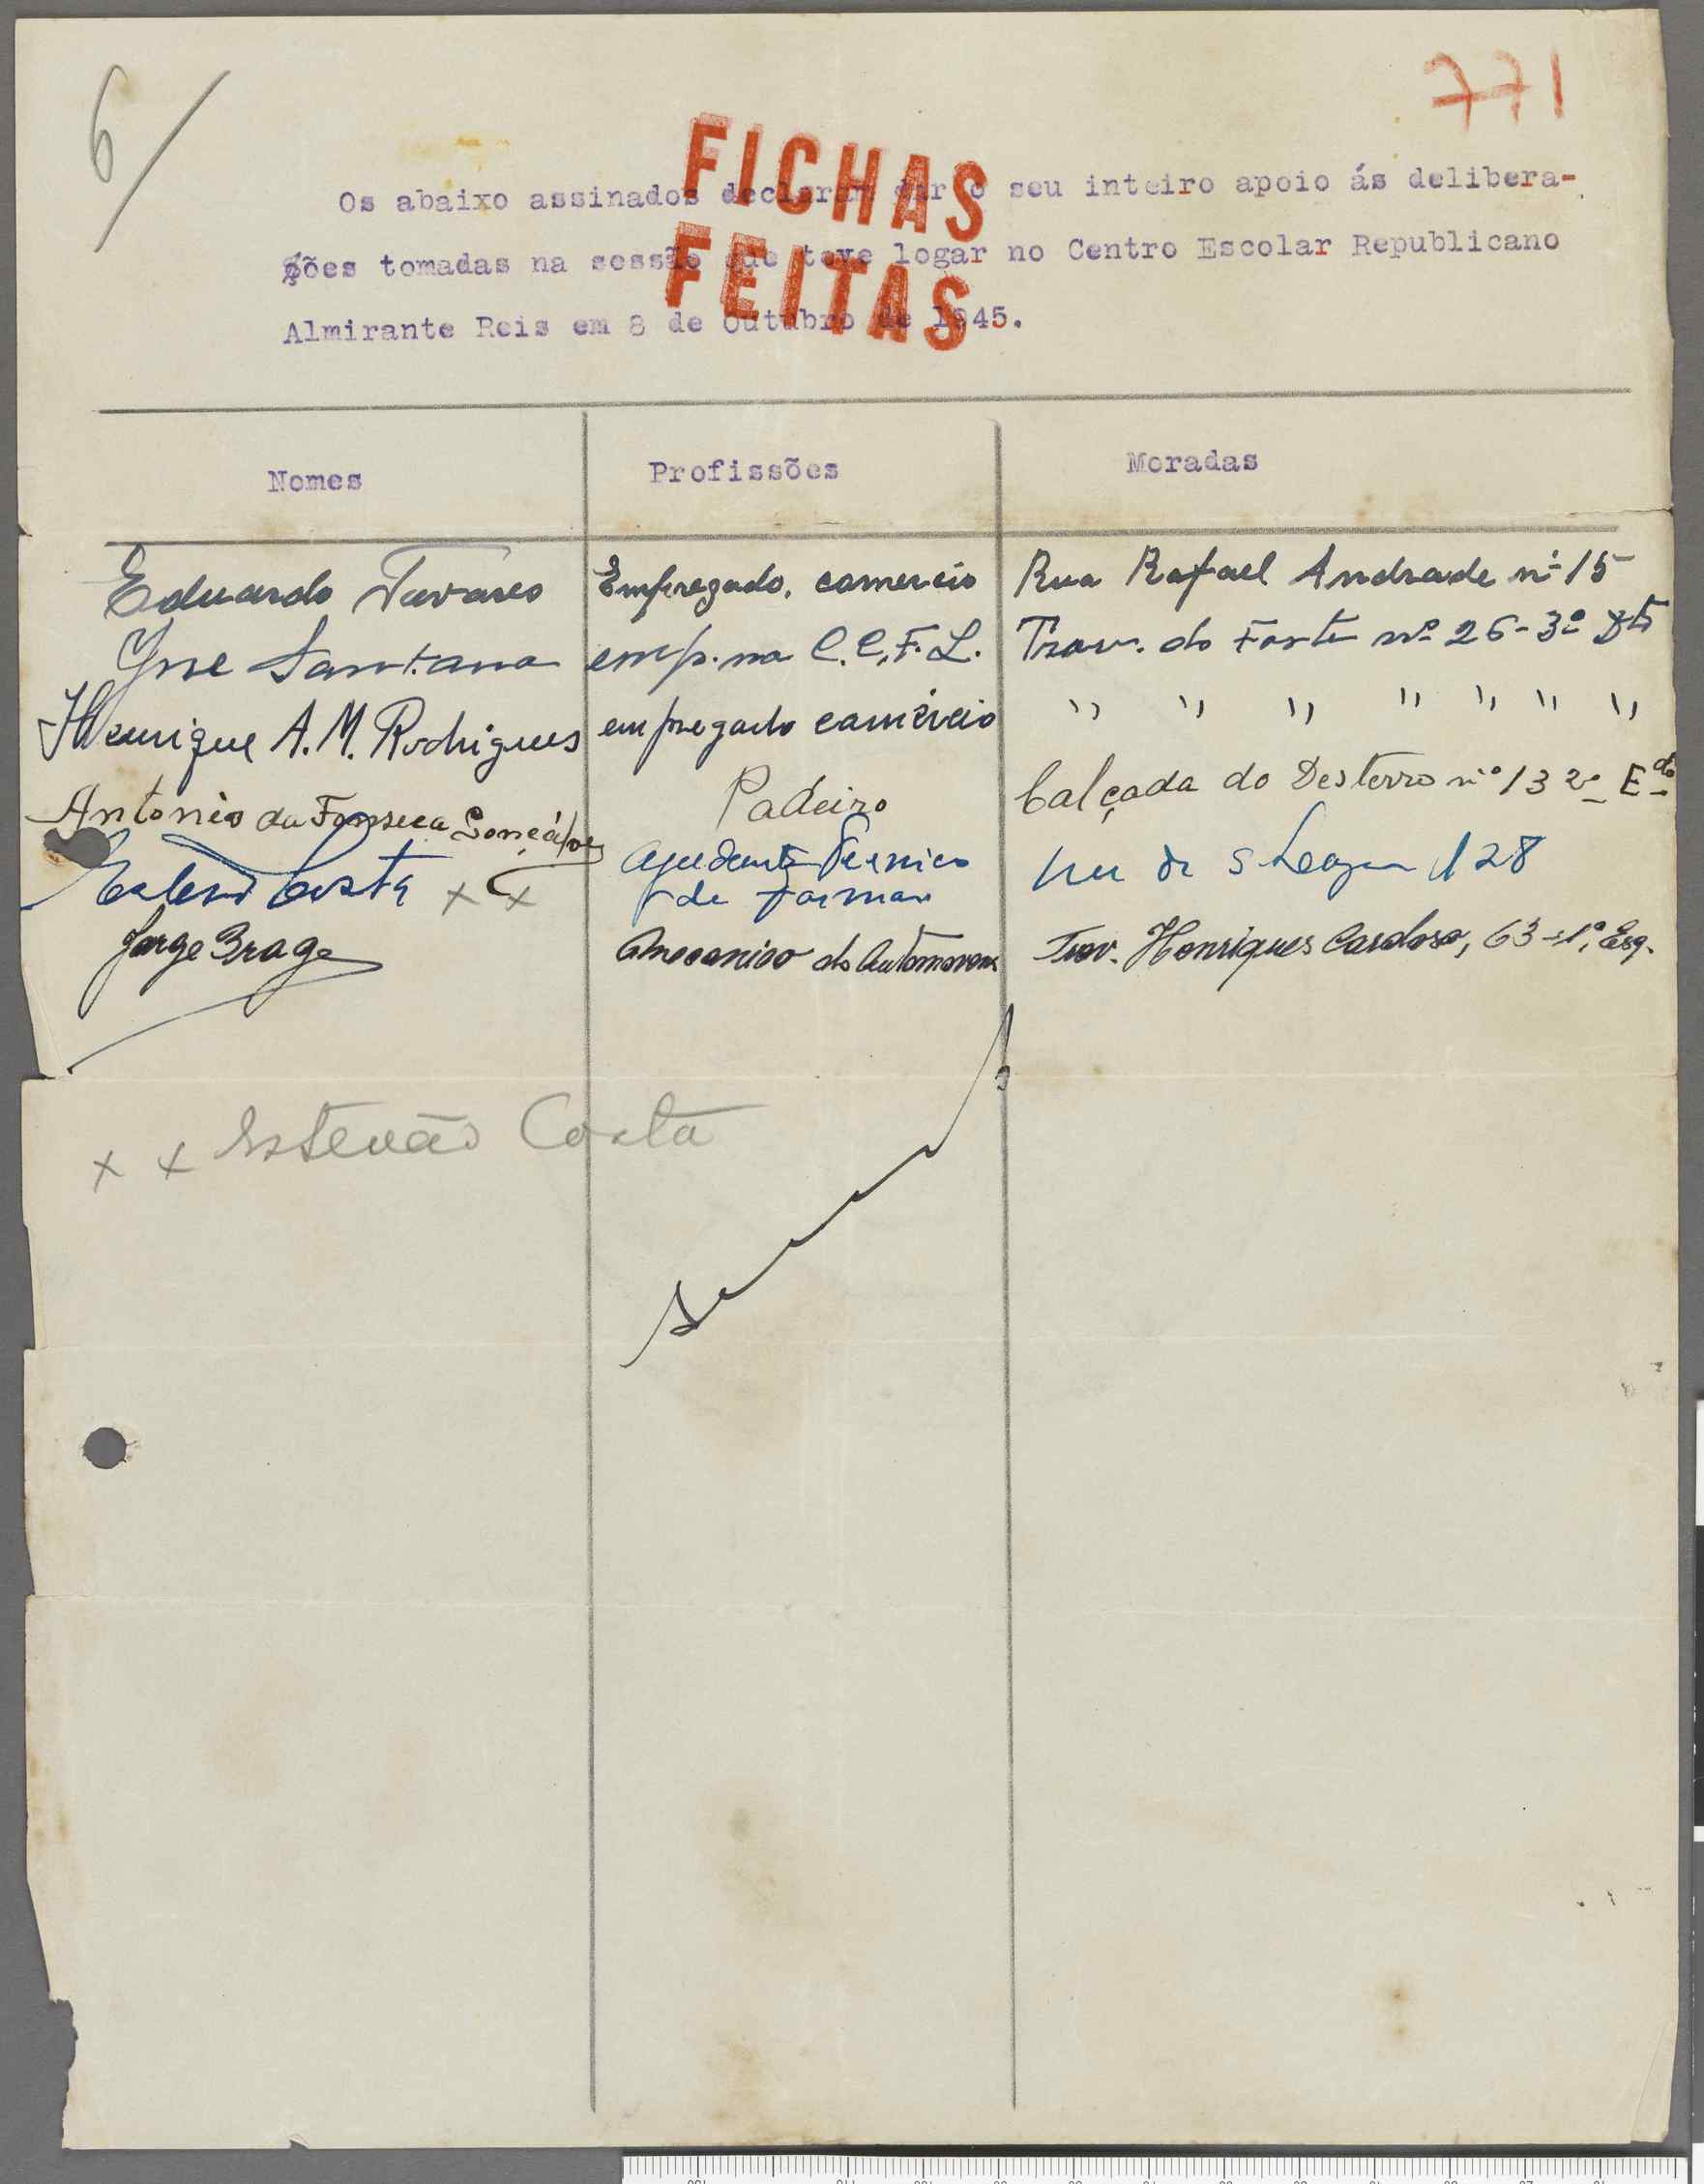 6
771
FICHAS
FEITAS
Os abaixo assinados declaram dar o seu inteiro apoio ás delibera-
ções tomadas na sessão que teve logar no Centro Escolar Republicano
Almirante Reis em 8 de Outubro de 1945.
Nomes Profissões Moradas
Eduardo Tavares Empregado. comercio Rua Rafael Andrade nº 15
Santana emp. na C.C.F.L. Trav. do Forte nº 26-3º Dtº
Henrique A. M. Rodrigues empregado comércio " " " " " " "
Antonio da Fonseca Gonçalves Padeiro Calçada do Desterro nº 13 2º Edo
Costa x x Ajudante Tecnico de Farmac 128
Jorge Braga Mecanico de Automoveis Trav. Henriques Cardoso, 63-1º, Esq.
x x Estevão Costa